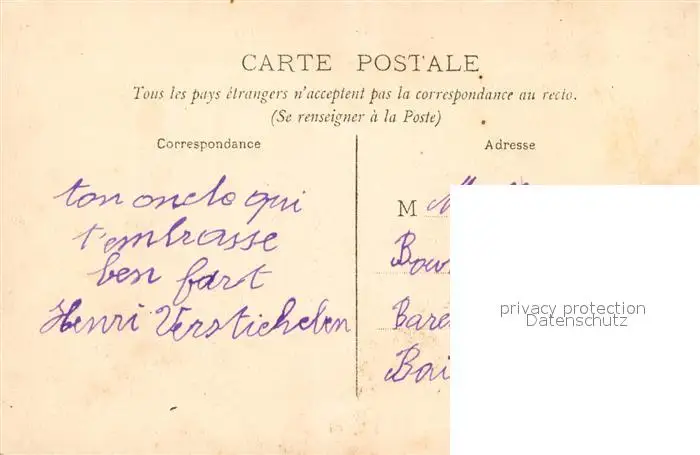 CARTE POSTALE
Tous les pays étrangers n'acceptent pas la correspondance au recto.
(Se renseigner à la Poste)
Correspondance
ton oncle qui
t'embrasse
ben fort
Henri Verstichelen
Adresse
M
privacy protection
Datenschutz